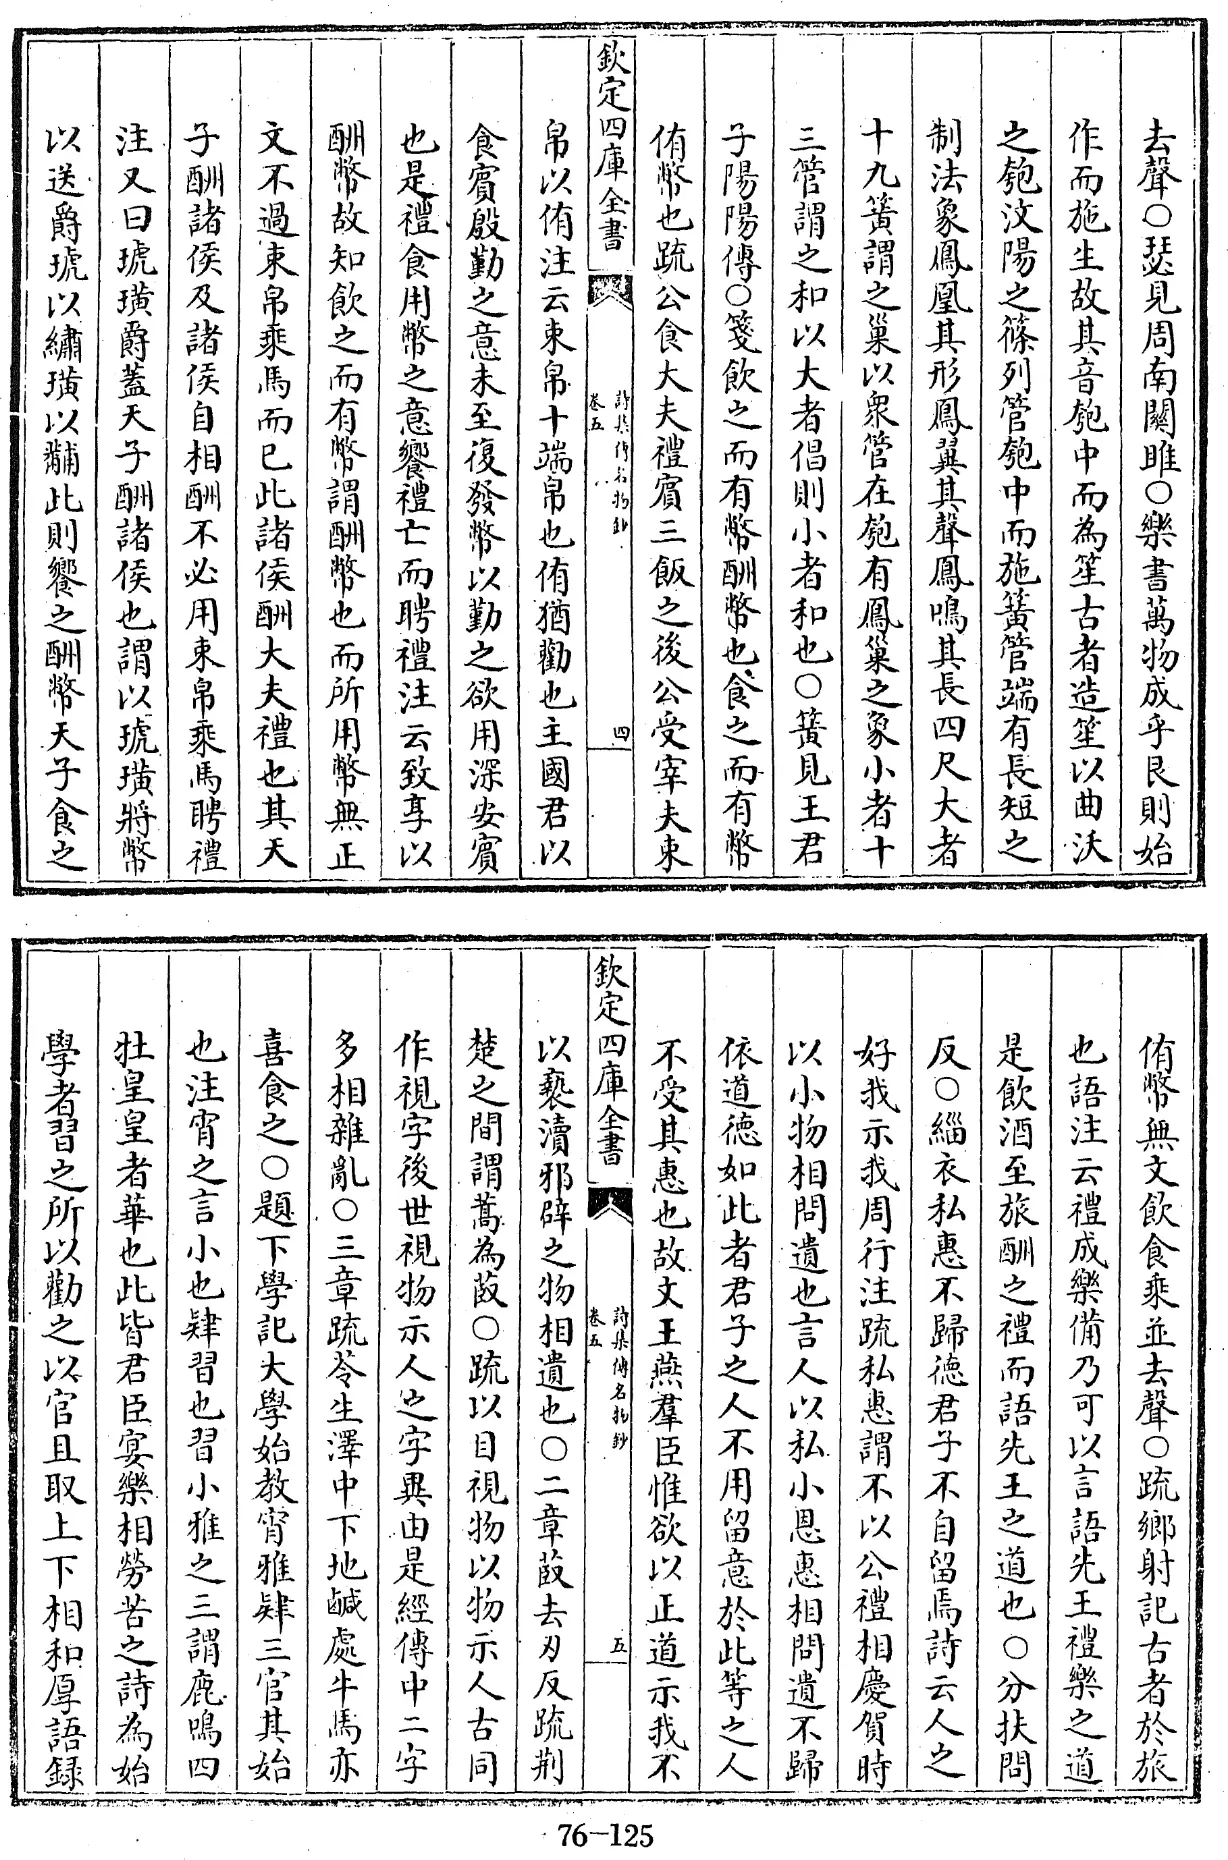 去聲○瑟見周南關雎○樂書萬物成乎艮則始
作而施生故其音匏中而為笙古者造笙以曲沃
之匏汶陽之篠列管匏中而施簧管端有長短之
制法象鳳凰其形鳳翼其聲鳳鳴其長四尺大者
十九簧謂之巢以衆管在匏有鳳巢之象小者十
三管謂之和以大者倡則小者和也○簧見王君
子陽陽傳○箋飲之而有幣酬幣也食之而有幣
侑幣也疏公食大夫禮賓三飯之後公受宰夫束
欽定四庫全書
詩集傳名物鈔
卷五
四
帛以侑注云束帛十端帛也侑猶勸也主國君以
食賓殷勤之意未至復發幣以勤之欲用深安賓
也是禮食用幣之意饗禮亡而聘禮注云致享以
酬幣故知飲之而有幣謂酬幣也而所用幣無正
文不過束帛乘馬而已此諸侯酬大夫禮也其天
子酬諸侯及諸侯自相酬不必用束帛乘馬聘禮
注又曰琥璜爵蓋天子酬諸侯也謂以琥璜將幣
以送爵琥以繡璜以黼此則饗之酬幣天子食之
侑幣無文飲食乘並去聲○疏鄉射記古者於旅
也語注云禮成樂備乃可以言語先王禮樂之道
是飲酒至旅酬之禮而語先王之道也○分扶問
反○緇衣私惠不歸德君子不自留焉詩云人之
好我示我周行注疏私惠謂不以公禮相慶賀時
以小物相問遺也言人以私小恩惠相問遺不歸
依道德如此者君子之人不用留意於此等之人
不受其惠也故文王燕羣臣惟欲以正道示我不
欽定四庫全書
詩集傳名物鈔
卷五
五
以褻瀆邪辟之物相遺也○二章菣去刃反疏荆
楚之間謂蒿為菣○疏以目視物以物示人古同
作視字後世視物示人之字異由是經傳中二字
多相雜亂○三章疏芩生澤中下地鹹處牛馬亦
喜食之○題下學記大學始教宵雅肄三官其始
也注宵之言小也肄習也習小雅之三謂鹿鳴四
牡皇皇者華也此皆君臣宴樂相勞苦之詩為始
學者習之所以勸之以官且取上下相和厚語録
76-125